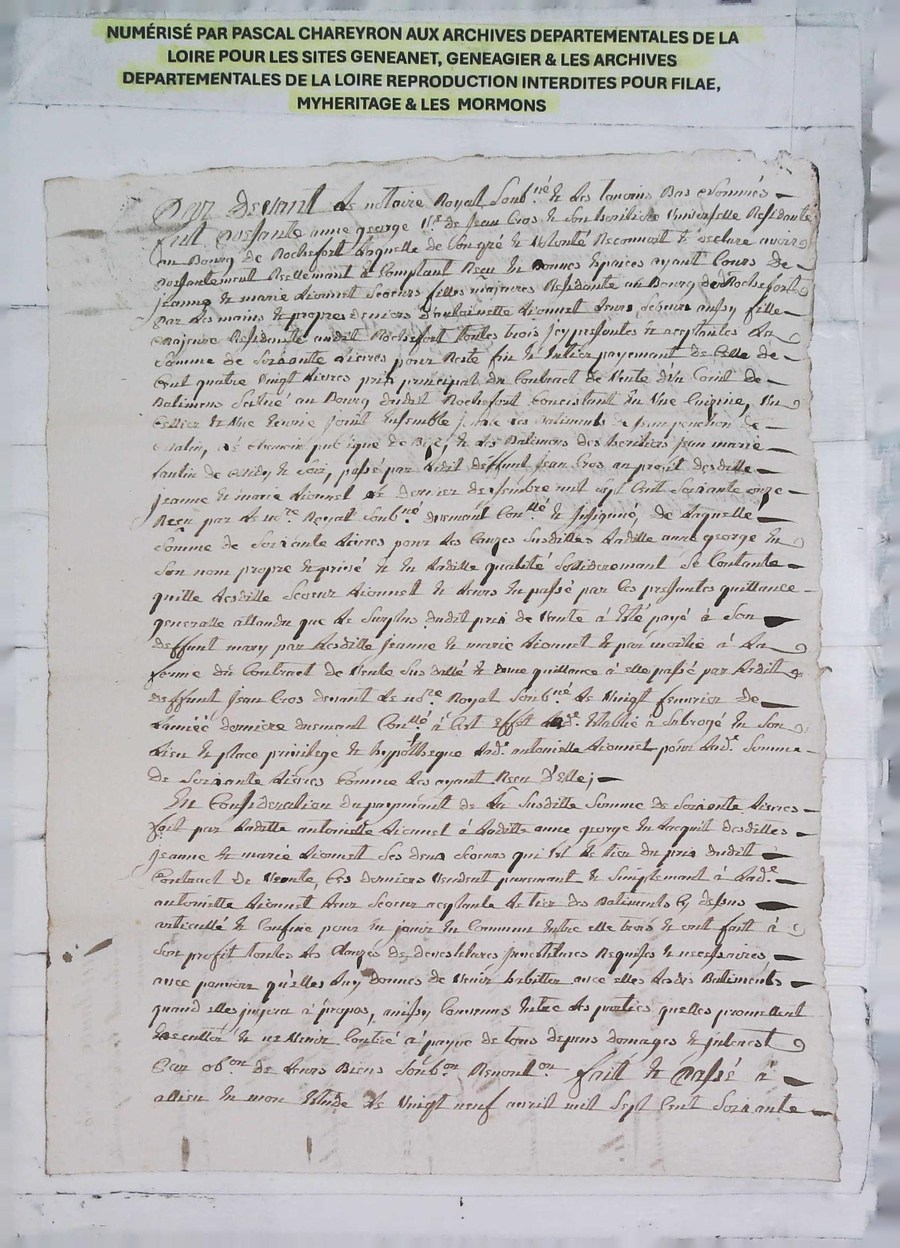 NUMÉRISÉ PAR PASCAL CHAREYRON AUX ARCHIVES DEPARTEMENTALES DE LA
LOIRE POUR LES SITES GENEANET, GENEAGIER & LES ARCHIVES
DEPARTEMENTALES DE LA LOIRE REPRODUCTION INTERDITES POUR FILAE,
MYHERITAGE & LES MORMONS
Par Devant Le notaire Royal Soub.né & Les temoins Bas nommés
fut presante anne george v.ve de Jean Cros & son heritiere universelle Residante
au Bourg de Rochefort Laquelle de son gré & volonté Reconnoit & declare avoir
presantement Reellement & Comptant Reçu En Bonnes Especes ayant Cours de
Jeanne & marie Lionnet Soeurs filles majeures Residante au Bourg de Rochefort
Par Les mains & propres deniers d'antoinette Lionnet Leurs Soeur aussy fille
majeure Residante audit Rochefort toutes trois Icy presentes & aceptantes La
Somme de Soixante Livres pour Reste fin & Entier payement de Celle de
Cent quatre Vingt Livres prix principal du Contract de Vente d'un Coint de
Batimens Scitué au Bourg dudit Rochefort concistant En Une Cuisine, Un
Cellier & Une Ecurie joint Ensemble les Batiments de Jean
matin, Le chemin publique de Bize, & Les Batimens des heritiers Jean marie
de midy & Soir, passé par Ledit deffunt Jean Cros au profit desditte
Jeanne & marie Lionnet Le dernier decembre mil Sept Cent Soixante onze
Reçu par Le no.re Royal Soub.né duement Con.llé & Insinué, de Laquelle
Somme de Soixante Livres pour Les Causes Susdittes Laditte anne george En
Son nom propre & privé & En Laditte qualité Solidairement Se Contante
quitte Lesditte Soeur Lionnet & Leurs En passé par Ces presantes quittance
generalle attandu que Le Surplus dudit prix de Vente à Eté payé à Son
deffunt mary par Lesditte Jeanne & marie Lionnet & par moitié à La
forme du Contract de Vente Sus datté & d'une quittance à elle passé par Ledit
deffunt Jean Cros devant Le no.re Royal Soub.né Le Vingt fevrier de
L'année derniere duement Con.llé à Cet Effet Lad.e à Subrogé En Son
Lieu & place privilege & hypotheque Lad.e antoinette Lionnet pour Lad.e Somme
de Soixante Livres Comme Les ayant Reçu D'Elle;
En Consideration du payement de La Susditte Somme de Soixante Livres
fait par Laditte antoinette Lionnet à Laditte anne george En Lacquit desdittes
Jeanne & marie Lionnet Ses deux Soeurs qui Est Le tier du prix dudit
Contract de Vente, Ces dernieres Vendent purement & Simplement à Lad.e
antoinette Lionnet Leur Soeur aceptante Le tier des Batiments Cy dessus
articullé & Confiné pour En jouir En Commun Entre elle trois & ont fait à
Son profit toutes Les Clauzes de devestitures Investitures Requises & necessaires
avec pouvoir qu'elles Luy donnes de Venir habitter avec elles Lesdis Batiments
quand elles jugera à propos, ainsy Convenus Entre Les parties quelles promettent
Executter & ne Venir Contre à payne de tous depens domages & interest
Par ob.on de Leurs Biens Soub.on Renont.on fait & Passé à
allieu En mon Etude Le Vingt neuf avril mil Sept Cent Soixante